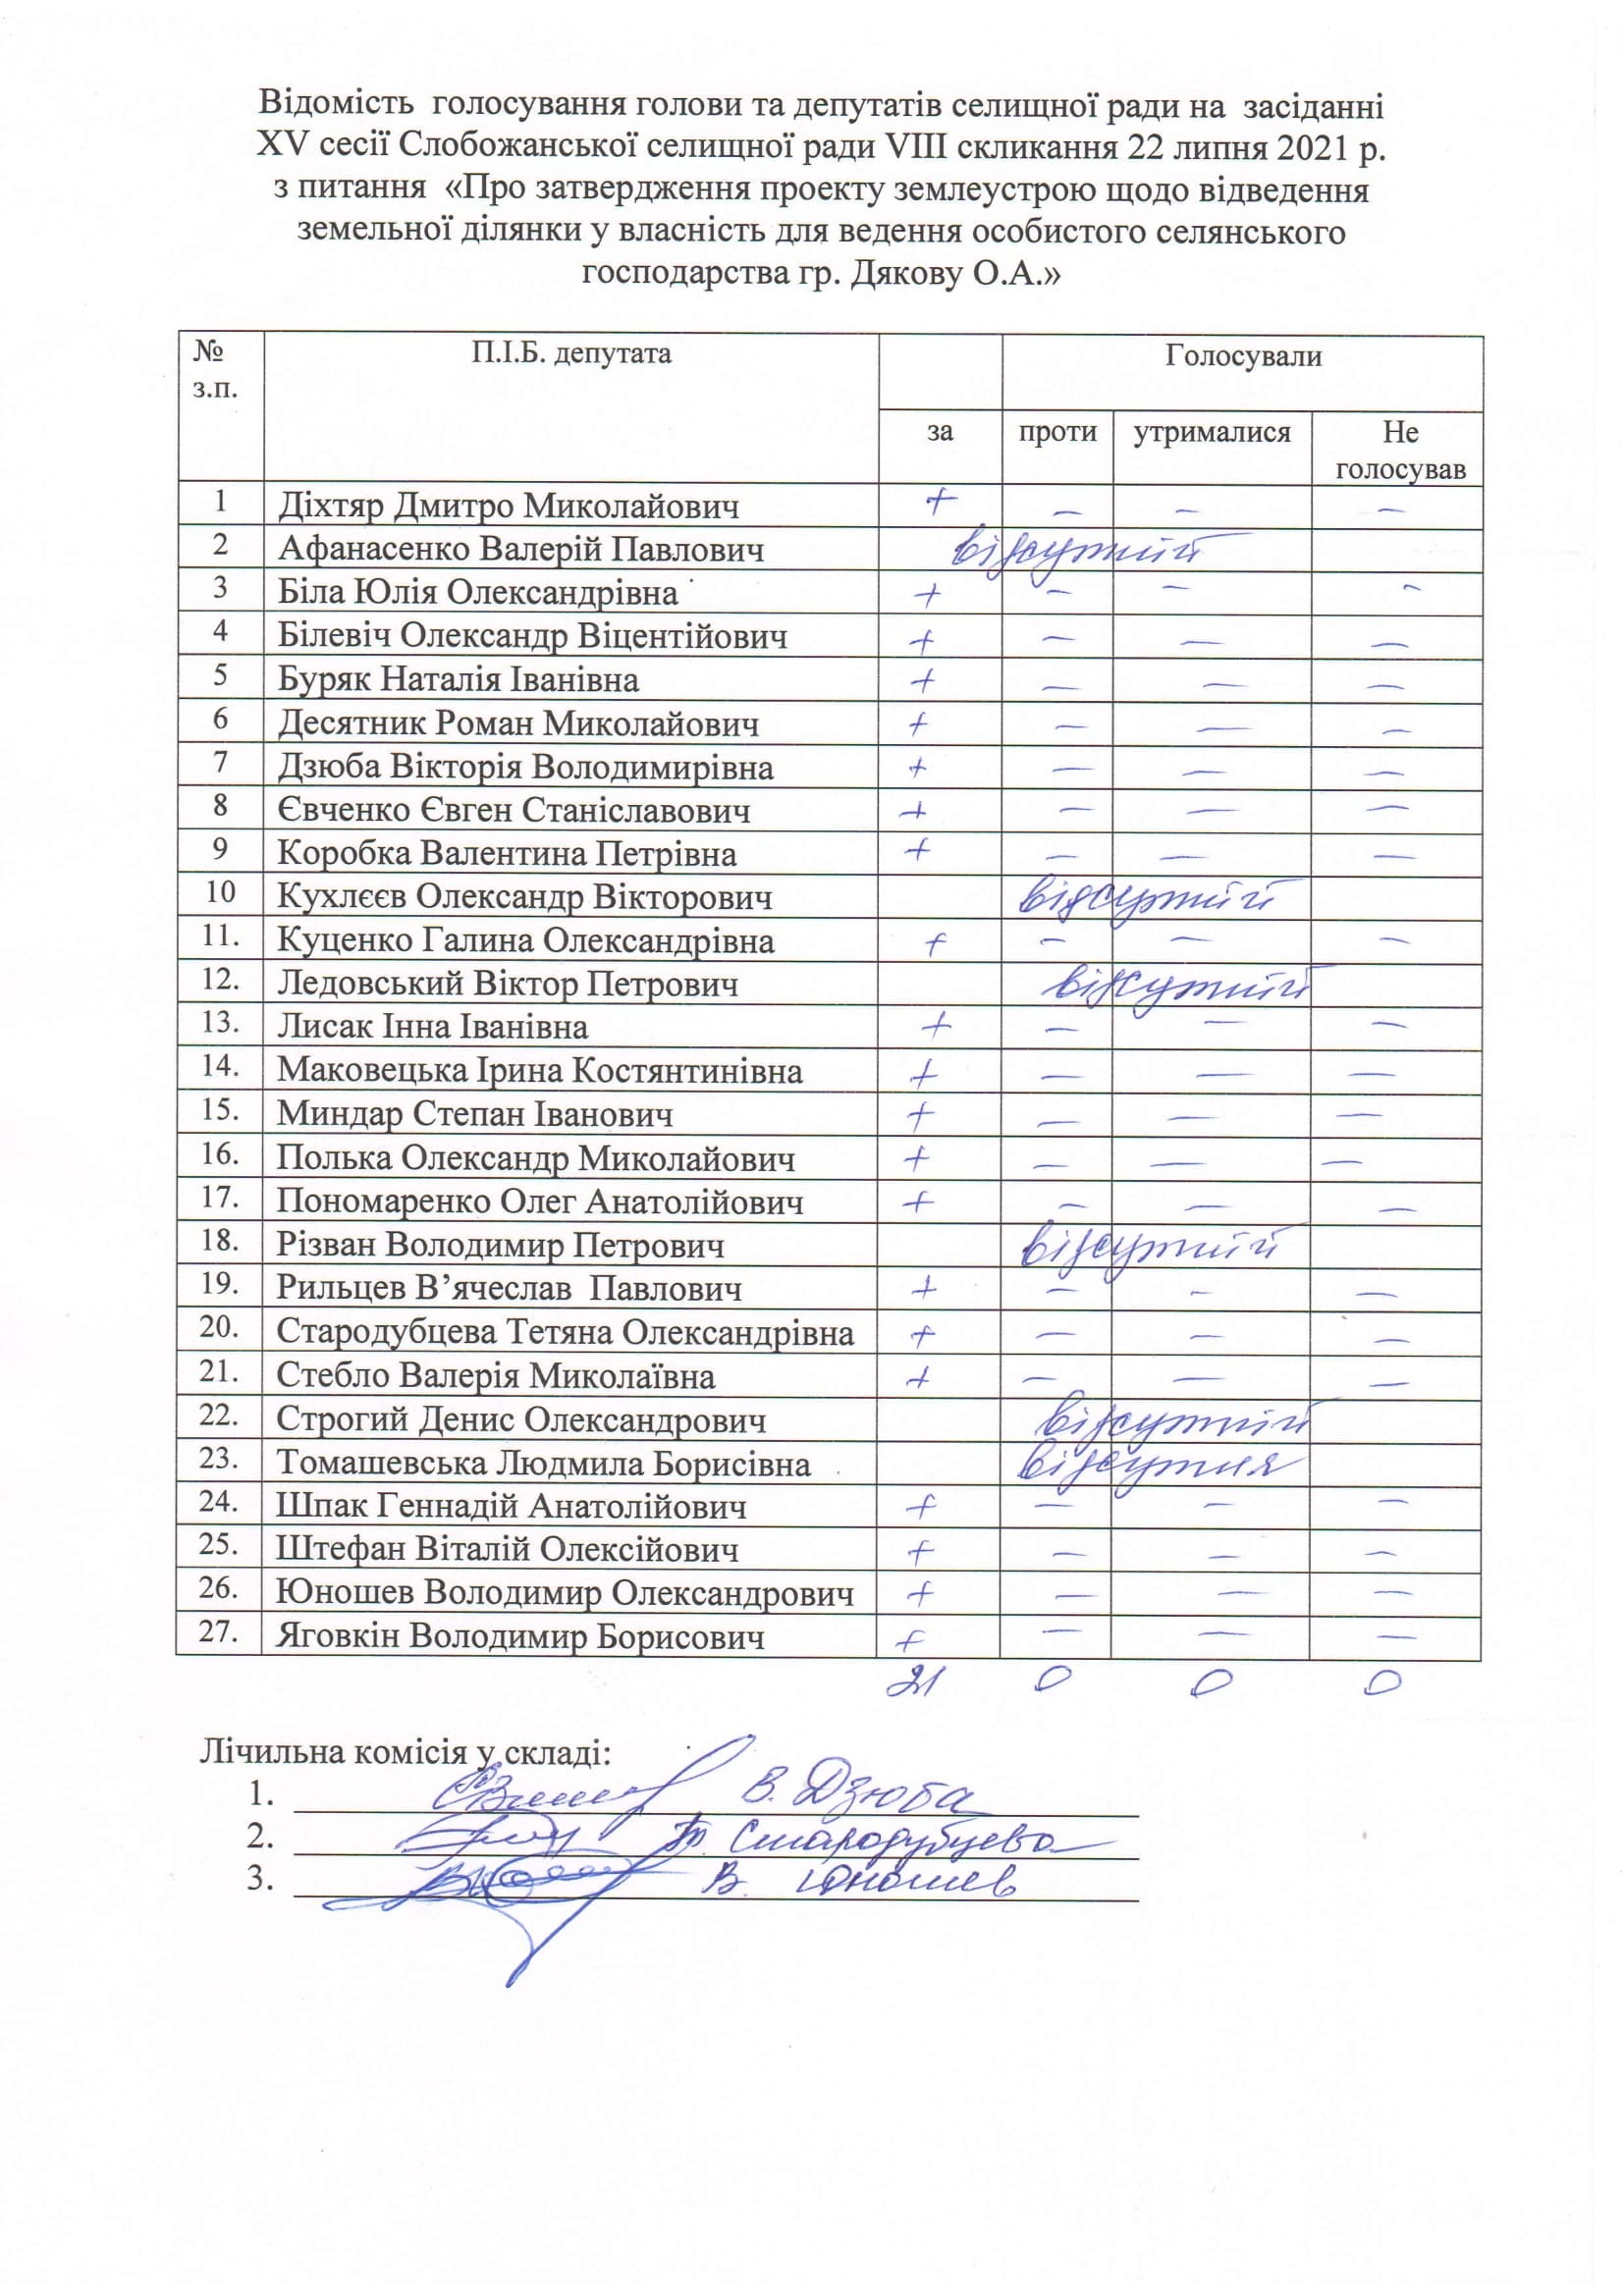 Відомість голосування голови та депутатів селищної ради на засіданні
XV сесії Слобожанської селищної ради VIII скликання 22 липня 2021 р.
з питання «Про затвердження проекту землеустрою щодо відведення
земельної ділянки у власність для ведення особистого селянського
господарства гр. Дякову О.А.»
№ з.п. П.І.Б. депутата Голосували
за проти утрималися Не голосував
1 Діхтяр Дмитро Миколайович + — — —
2 Афанасенко Валерій Павлович відсутній
3 Біла Юлія Олександрівна + — — —
4 Білевіч Олександр Віцентійович + — — —
5 Буряк Наталія Іванівна + — — —
6 Десятник Роман Миколайович + — — —
7 Дзюба Вікторія Володимирівна + — — —
8 Євченко Євген Станіславович + — — —
9 Коробка Валентина Петрівна + — — —
10 Кухлєєв Олександр Вікторович відсутній
11. Куценко Галина Олександрівна + — — —
12. Ледовський Віктор Петрович відсутній
13. Лисак Інна Іванівна + — — —
14. Маковецька Ірина Костянтинівна + — — —
15. Миндар Степан Іванович + — — —
16. Полька Олександр Миколайович + — — —
17. Пономаренко Олег Анатолійович + — — —
18. Різван Володимир Петрович відсутній
19. Рильцев В’ячеслав Павлович + — — —
20. Стародубцева Тетяна Олександрівна + — — —
21. Стебло Валерія Миколаївна + — — —
22. Строгий Денис Олександрович відсутній
23. Томашевська Людмила Борисівна відсутня
24. Шпак Геннадій Анатолійович + — — —
25. Штефан Віталій Олексійович + — — —
26. Юношев Володимир Олександрович + — — —
27. Яговкін Володимир Борисович + — — —
21 0 0 0
Лічильна комісія у складі:
1. В. Дзюба
2. Т. Стародубцева
3. В. Юношев